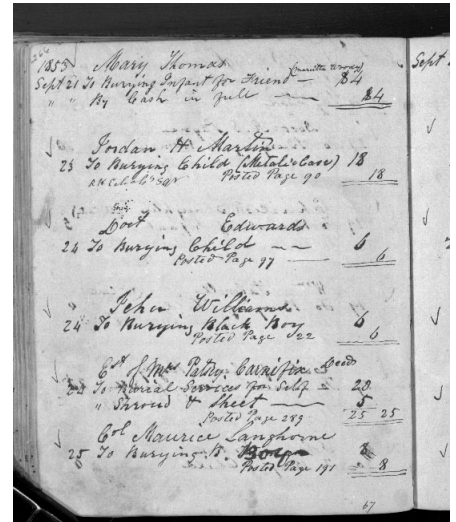 1853 Mary Thomas
Sept 21 To Burying Infant for Friend — $4
" " By Cash in full — $4
Jordan H Martin
23 To Burying Child (Metalic Case) 18
Posted Page 90 18
Doct Edwards
24 To Burying Child — — 6
Posted Page 97 — 6
John Williams
24 To Burying Black Boy 6
Posted Page 22 6
Est of Mrs Patsy Carnifix Decd
24 To Burial Services for Self — 20
" Shroud & Sheet — 5
Posted Page 289 25 25
Col Maurice Langhorne
25 To Burying B. 8
Posted Page 191 8
67
Sept